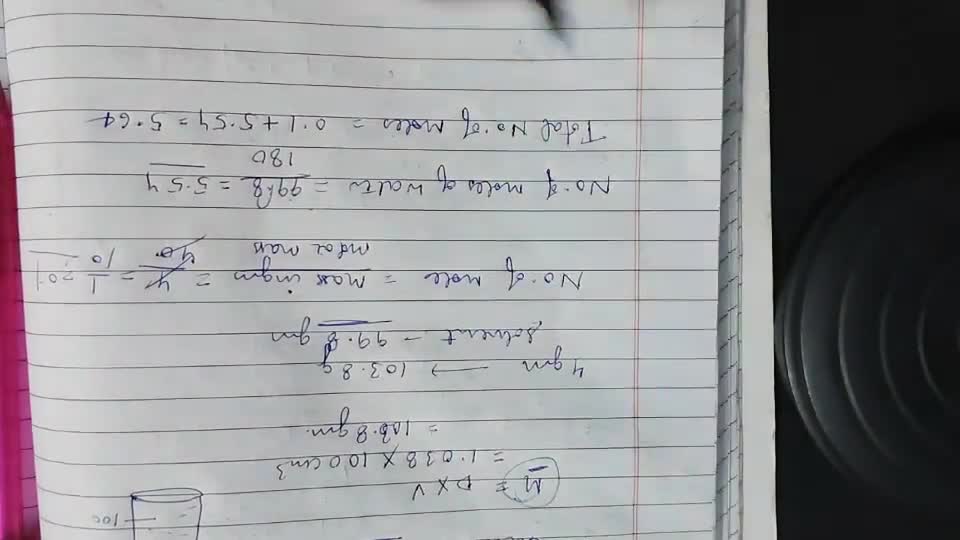 100
M = D X V
= 1.038 X 100 cm³
= 103.8 gm.
4 gm → 103.8 g
Solvent - 99.8 gm
No. of mole = mass in gm / molar mass = 4 / 40 = 1 / 10 = 0.1
No. of moles of water = 998 / 180 = 5.54
Total No. of Moles = 0.1 + 5.54 = 5.64